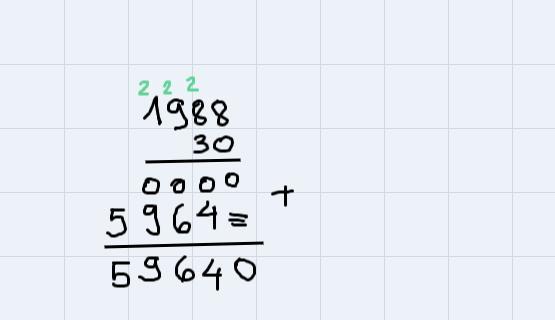 2 2 2
1988
30
0000
+
5964=
59640